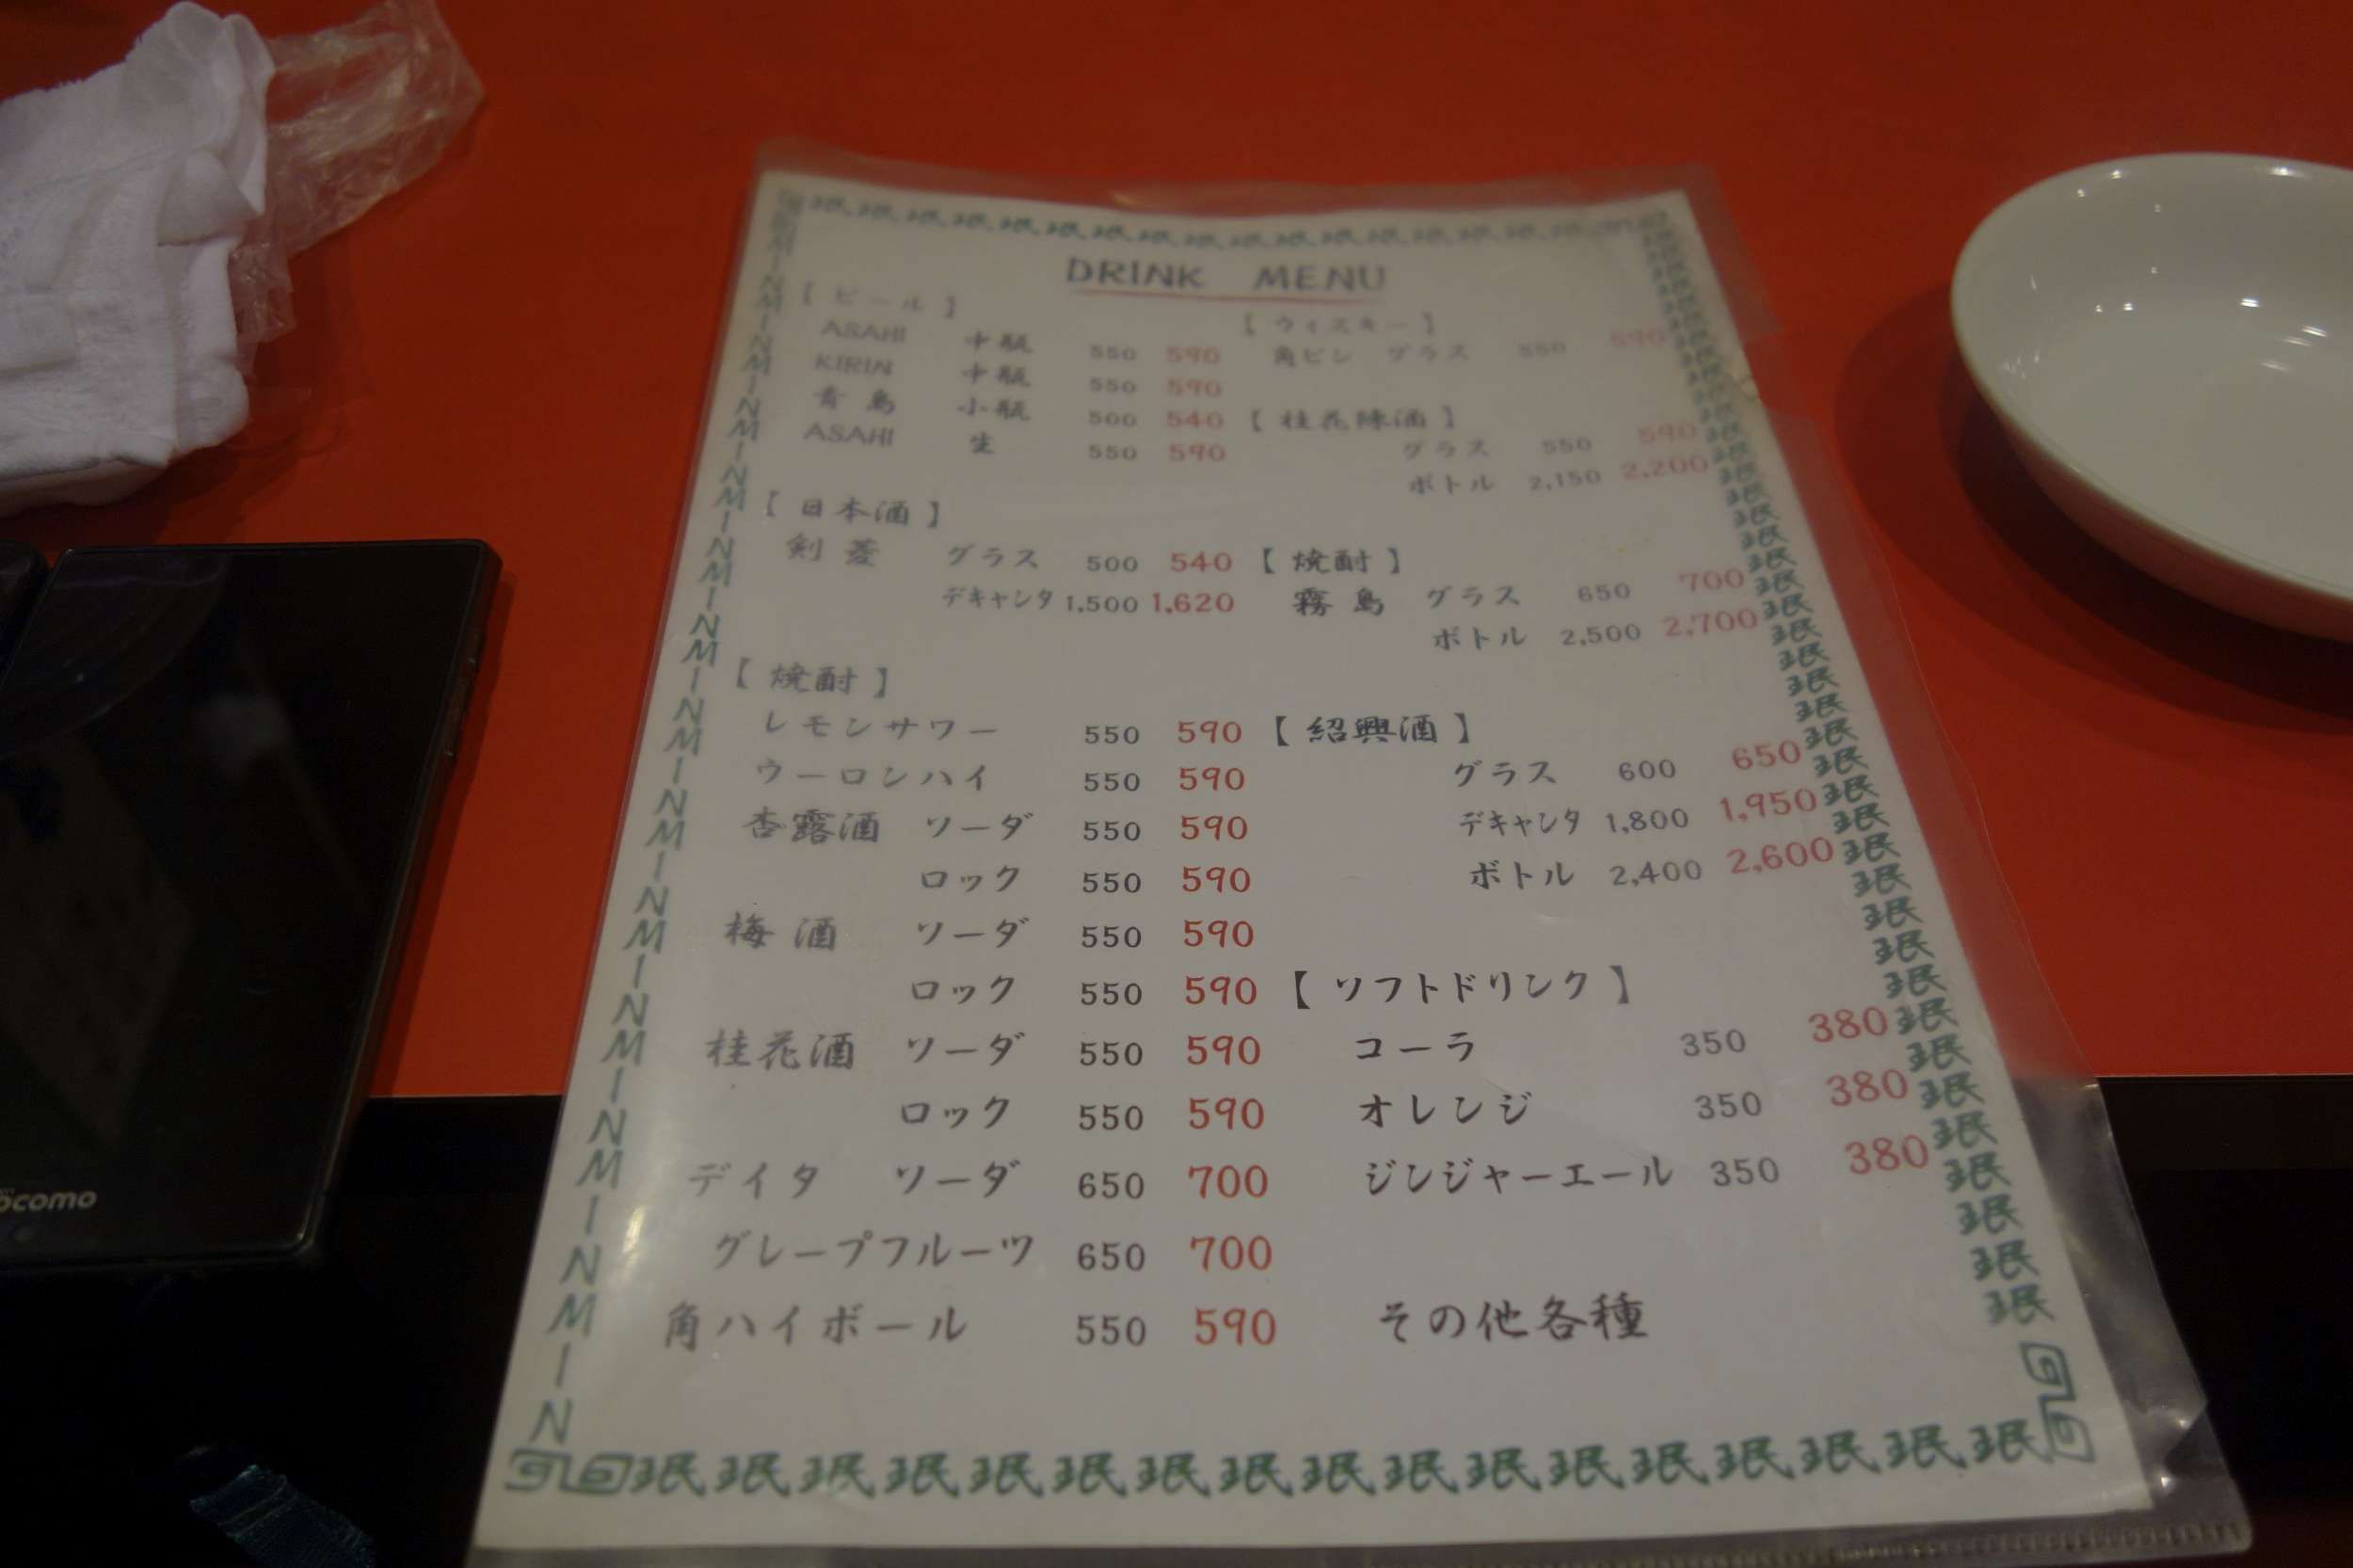 DRINK MENU
【 ビール 】
ASAHI 中瓶 550 590
KIRIN 中瓶 550 590
青島 小瓶 500 540
ASAHI 生 550 590
【 日本酒 】
剣菱 グラス 500 540
デキャンタ 1,500 1,620
【 焼酎 】
レモンサワー 550 590
ウーロンハイ 550 590
杏露酒 ソーダ 550 590
ロック 550 590
梅酒 ソーダ 550 590
ロック 550 590
桂花酒 ソーダ 550 590
ロック 550 590
デイタ ソーダ 650 700
グレープフルーツ 650 700
角ハイボール 550 590
【 ウィスキー 】
角ビン グラス 550 590
【 桂花陳酒 】
グラス 550 590
ボトル 2,150 2,200
【 焼酎 】
霧島 グラス 650 700
ボトル 2,500 2,700
【 紹興酒 】
グラス 600 650
デキャンタ 1,800 1,950
ボトル 2,400 2,600
【 ソフトドリンク 】
コーラ 350 380
オレンジ 350 380
ジンジャーエール 350 380
その他各種
MINMINMINMINMINMINMINMINMINMINMIN
珉珉珉珉珉珉珉珉珉珉珉珉珉珉珉珉珉
docomo